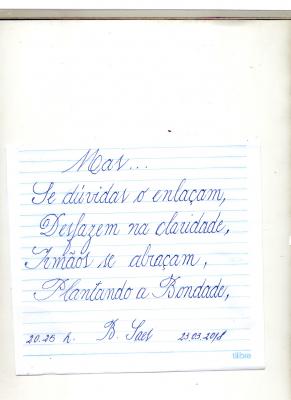 Mas...
Se dúvidas o enlaçam,
Desfazem na claridade,
Irmãos se abraçam,
Plantando a Bondade,
20.26 h. B. Saes 23.03.2018
tilibra